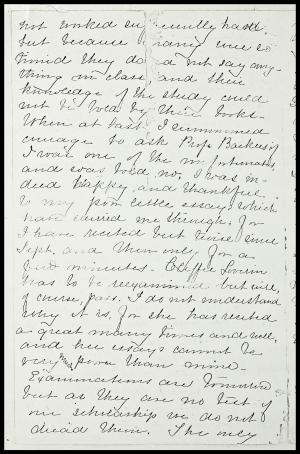 not worked sufficiently hard.
but because many were so
timid they do not say any-
thing in class, and their
knowledge of the study could
not be told by their looks.
When at last I summoned
courage to ask Prof. Backus if
I was one of the unfortunates,
and was told no, I was in-
deed happy, and thankful
to my poor little essay, which
have carried me through, for
I have recited but twice since
Sept. and then only for a
few minutes.
has to be reexamined but will,
of course, pass. I do not understand
why it is, for she has recited
a great many times and well,
and her essays cannot be
very much poorer than mine.
Examinations are tomorrow
but as they are no test of
our scholarship we do not
dread them. The only